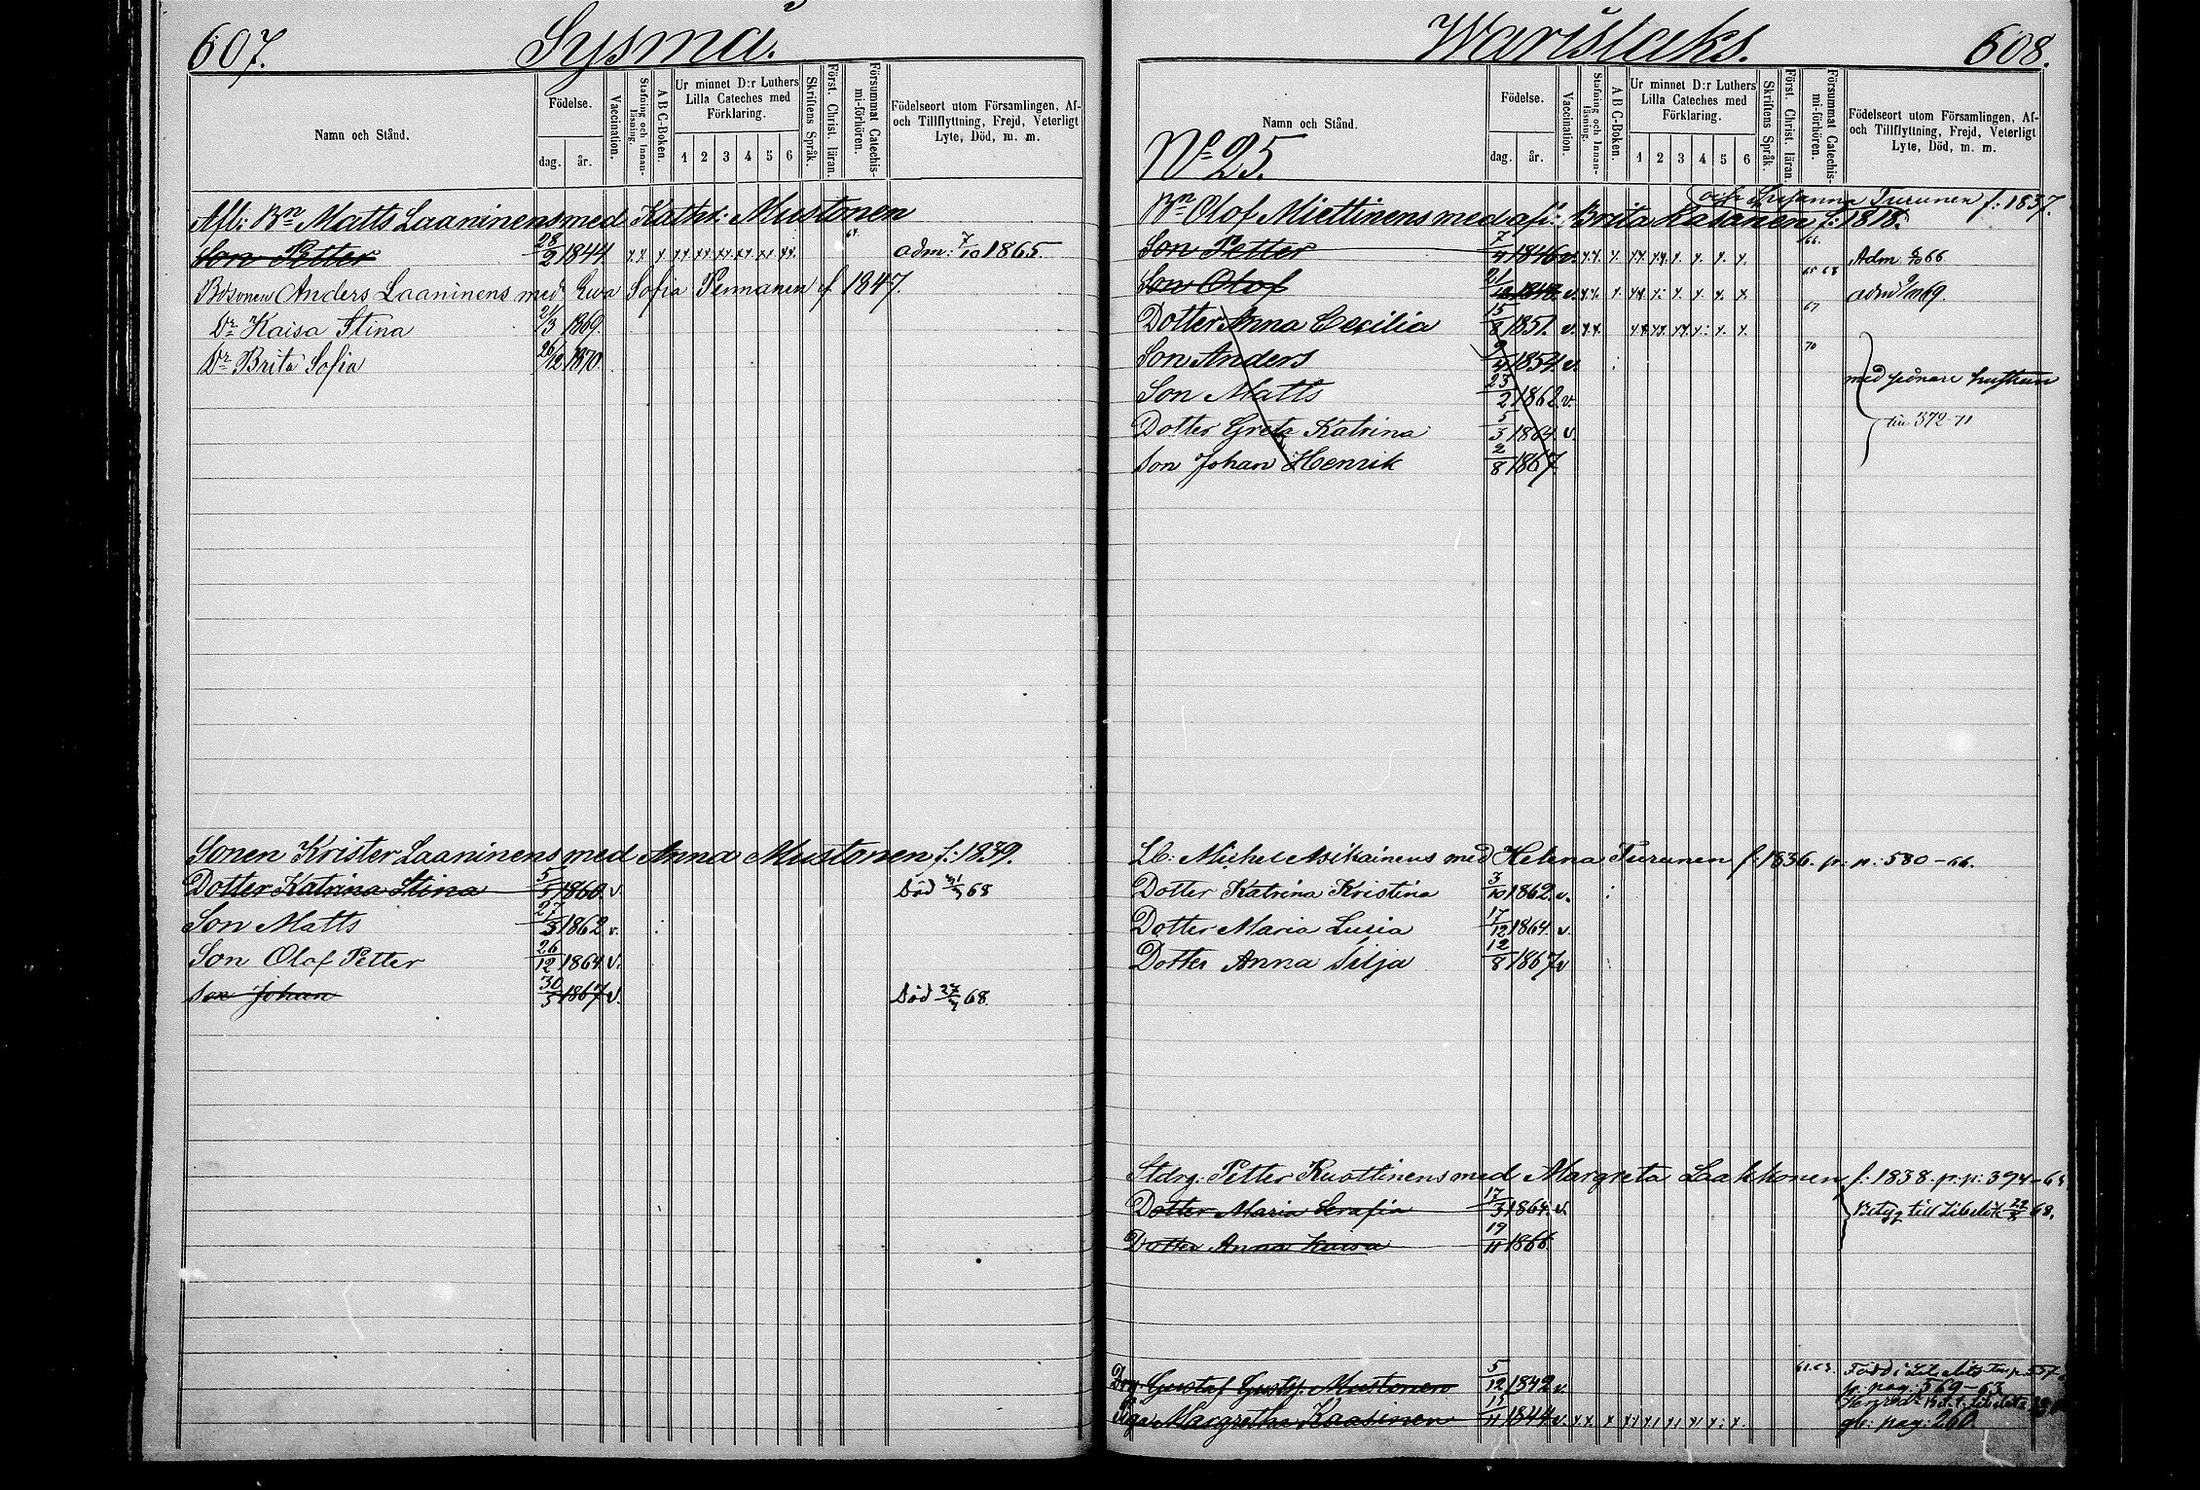 607. Sysmä.
Namn och Stånd.
Födelse.
dag. år.
Vaccination.
Stafning och Innan-läsning.
A B C-Boken.
Ur minnet D:r Luthers Lilla Cateches med Förklaring.
1 2 3 4 5 6
Skriftens Språk.
Först. Christ. läran.
Försummat Catechis-mi-förhören.
Födelseort utom Församlingen, Af-och Tillflyttning, Frejd, Veterligt Lyte, Död, m. m.
Afl: Bn Matts Laaninens med Kathr: Mustonen
Son Petter 28/2 1844 adm: 7/10 1865.
Bdsonen Anders Laaninens med Ewa Sofia Pennanen f 1847.
Dr Kaisa Stina 21/3 1869.
Dr Brita Sofia 26/12 1870.
Sonen Krister Laaninens med Anna Mustonen f: 1839.
Dotter Katrina Stina 5/5 1860. v. Död 68
Son Matts 27/5 1862 v.
Son Olof Petter 26/12 1864 v.
Son Johan 30/5 1867 v. Död 68.
Warislaks. 608.
Namn och Stånd.
No 25.
Födelse.
dag. år.
Vaccination.
Stafning och Innan-läsning.
A B C-Boken.
Ur minnet D:r Luthers Lilla Cateches med Förklaring.
1 2 3 4 5 6
Skriftens Språk.
Först. Christ. läran.
Försummat Catechis-mi-förhören.
Födelseort utom Församlingen, Af-och Tillflyttning, Frejd, Veterligt Lyte, Död, m. m.
Turunen f: 1837.
Bn Olof Miettinens med afl: Brita Kasanen f: 1818.
Son Petter 7/4 1846 v. 66. Adm 66
Son Olof 21/12 1848. v. 65 68 adm 69.
Dotter Anna Cecilia 15/8 1851. v. 67
Son Anders 9/4 1854 v. 70
Son Matts 23/2 1862. v. med
Dotter Greta Katrina 5/3 1864 v. 372-71
Son Johan Henrik 2/8 1867
Lb: Michel Asikainens med Helena Turunen f: 1836. fr: p: 580-66.
Dotter Katrina Kristina 3/10 1862. v.
Dotter Maria Lusia 17/12 1864. v.
Dotter Anna Silja 12/8 1867 v
Stdrg: Petter Ruottinens med Margreta Laakkonen f: 1838. fr. p: 394-
Dotter Maria Serafia 17/3 1864. v. Betyg till Libelits 22/8 68.
Dotter Anna Kaisa 19/11 1866
Drg. Gustaf Gustfs. Mustonen 5/12 1842 v. 61.63. Född i
fr: pag: 569-63
Piga Margretha Kaasinen 11/11 1844 v. gb: pag: 260.